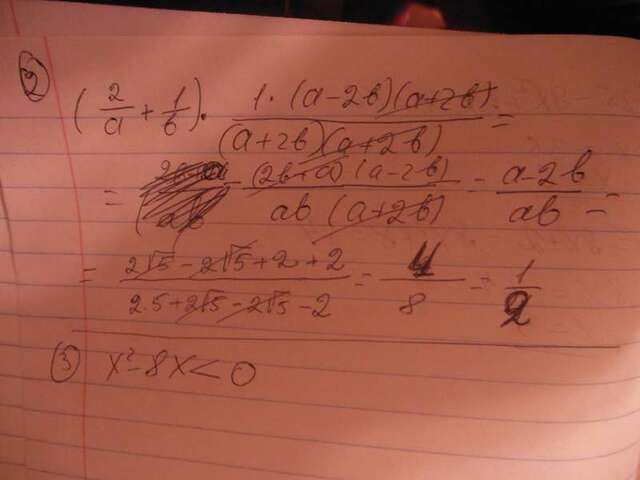 2
(2/a + 1/b) · 1·(a-2b)(a+2b) / (a+2b)(a+2b) =
= (2b+a)(a-2b) / ab(a+2b) = a-2b / ab =
= 2√5 - 2√5 + 2 + 2 / 2·5 + 2√5 - 2√5 - 2 = 4/8 = 1/2
3 x² - 8x < 0